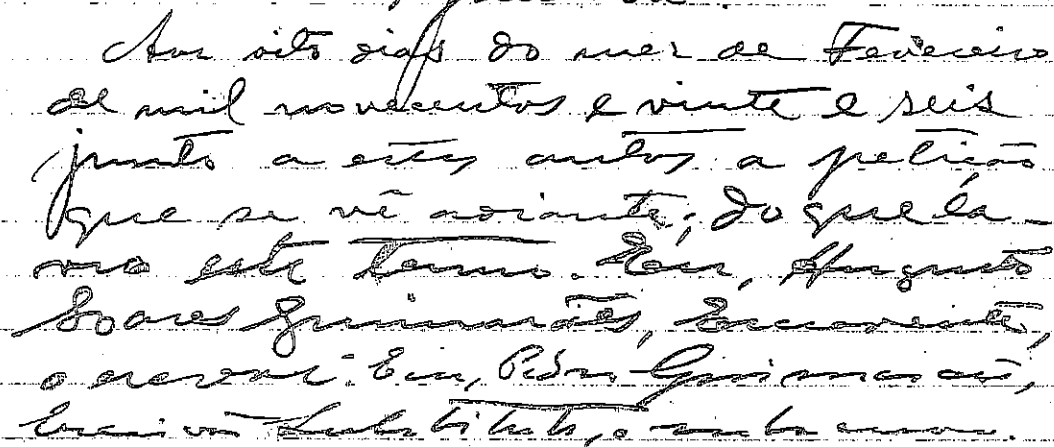 Aos oito dias do mez de Fevereiro
de mil novecentos e vinte e seis
junto a estes autos a petição
que se vê adiante; do que la-
vro este termo. Eu, Augusto
Soares Guimarães, Escrevente,
o escrevi. Eu, Pedro Guimarães,
Escrivão Substituto, o subscrevo.